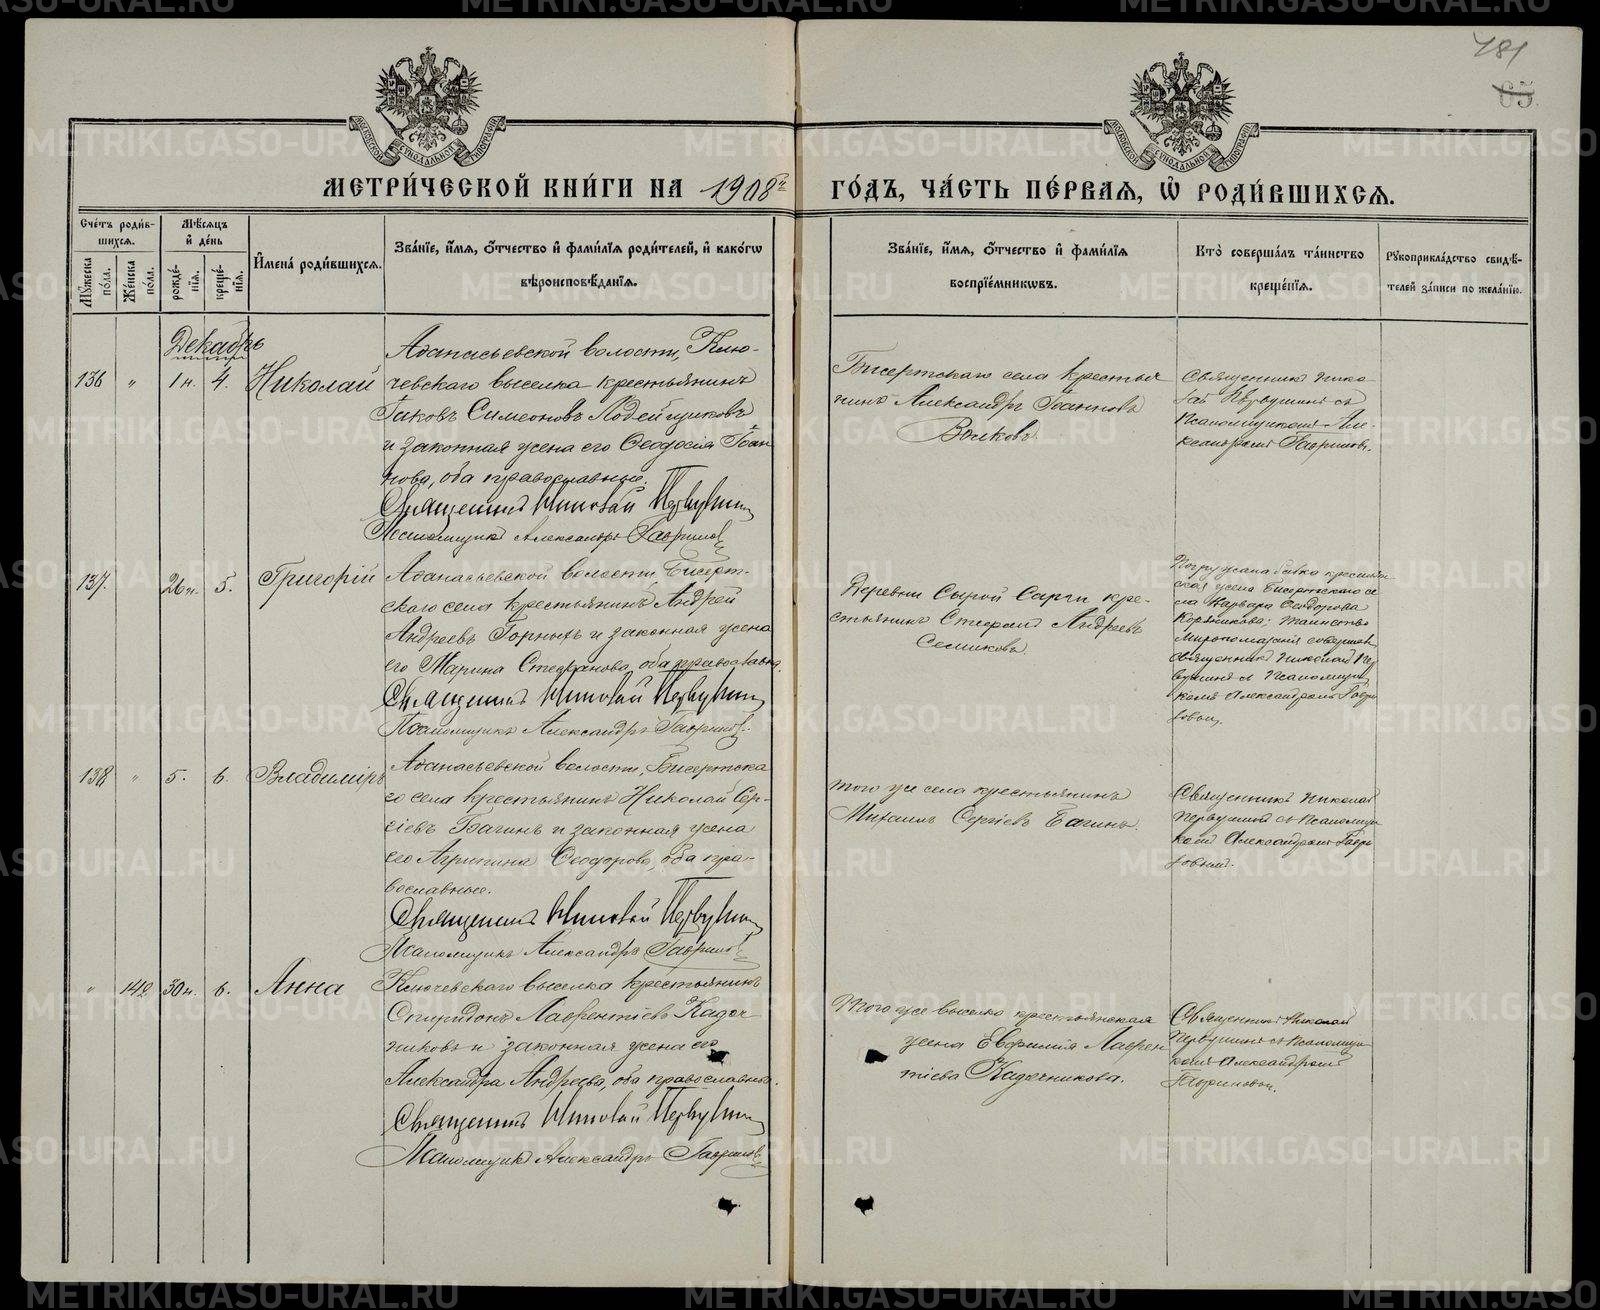 781
65.
МОСКОВСКОЙ СѴНОДАЛЬНОЙ ТИПОГРАФІИ
МОСКОВСКОЙ СѴНОДАЛЬНОЙ ТИПОГРАФІИ
МЕТРИ́ЧЕСКОЙ КНИ́ГИ НА 1908й ГО́ДЪ, ЧА́СТЬ ПЕ́РВАѦ, Ѡ҆ РОДИ́ВШИХСѦ.
Сче́тъ роди́в-
шихсѧ.
Мꙋ́жеска по́ла.
Же́нска по́ла.
Мѣ́сѧцъ
и҆ де́нь
рожде́-
нїѧ.
креще́-
нїѧ.
И҆мена̀ роди́вшихсѧ.
Зва́нїе, и҆́мѧ, ѻ҆́тчество и҆ фами́лїѧ роди́телей, и҆ како́гѡ
вѣроисповѣ́данїѧ.
Зва́нїе, и҆́мѧ, ѻ҆́тчество и҆ фами́лїѧ
воспрїе́мникѡвъ.
Кто̀ соверша́лъ та́инство
креще́нїѧ.
Рꙋкоприкла́дство свидѣ́-
телей за́писи по жела́нїю.
Декабрь
136 " 1 н. 4. Николай
Аѳанасьевской волости, Клю-
чевскаго выселка крестьянинъ
Іаковъ Симеоновъ Лодейщиковъ
и законная жена его Ѳеодосія Іоан
нова, оба православные.
Священникъ Николай Первушин
Псаломщикъ Александръ Гаврилов
Бисертскаго села крестья
нинъ Александръ Іоанновъ
Волковъ.
Священникъ Нико-
лай Первушинъ съ
Псаломщикомъ Але-
ксандромъ Гавриловы.
137. 26 н. 5. Григорій
Аѳанасьевской волости, Бисерт-
скаго села крестьянинъ Андрей
Андреевъ Горныхъ и законная жена
его Марина Стефанова, оба православн.
Священникъ Николай Первушин
Псаломщикъ Александръ Гаврилов.
Деревни Сырой Сарги кре-
стьянинъ Стефанъ Андреевъ
Семиковъ.
Погружала бабка крестьян
ская жена Бисертскаго се
ла Варвара Ѳеодорова
Корякикова; таинство
Миропомазанія соверши
священникъ Николай Пер
вушинъ съ Псаломщи
комъ Александромъ Гаври
ловым.
138 " 5. 6. Владиміръ
Аѳанасьевской волости, Бисертска
го села крестьянинъ Николай Сер-
гіевъ Багинъ и законная жена
его Агрипина Ѳеодорова, оба пра-
вославные.
Священникъ Николай Первушин
Псаломщикъ Александръ Гаврилов
того же села крестьянинъ
Михаилъ Сергіевъ Багинъ.
Священникъ Николай
Первушинъ съ Псаломщи
комъ Александромъ Гаври
ловымъ.
" 142 30 н. 6. Анна
Ключевскаго выселка крестьянинъ
Спиридонъ Лаврентіевъ Кадоч-
никовъ и законная жена его
Александра Андреева, оба православны.
Священникъ Николай Первушин
Псаломщикъ Александръ Гаврилов
Того же выселка крестьянская
жена Евфимія Лаврен
тіева Кадочникова.
Священникъ Николай
Первушинъ съ Псаломщи
комъ Александромъ
Гавриловым.
METRIKI.GASO-URAL.RU